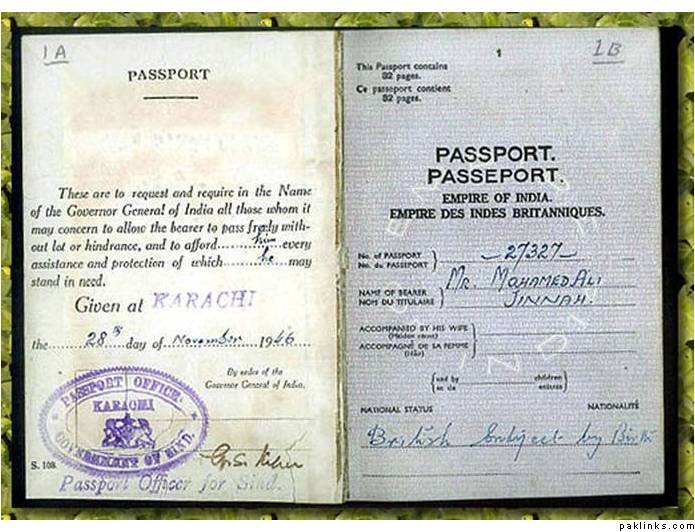 1A
PASSPORT
These are to request and require in the Name
of the Governor General of India all those whom it
may concern to allow the bearer to pass freely with-
out let or hindrance, and to afford........him......every
assistance and protection of which........he......may
stand in need.
Given at KARACHI
the......28th...day of November 1946...
By order of the
Governor General of India.
PASSPORT OFFICE.
KARACHI
GOVERNMENT OF SIND.
S. 108.
Passport Officer for Sind.
1
1B
This Passport contains
32 pages.
Ce passeport contient
32 pages.
PASSPORT.
PASSEPORT.
EMPIRE OF INDIA.
EMPIRE DES INDES BRITANNIQUES.
No. of PASSPORT
No. du PASSEPORT
27327
NAME OF BEARER
NOM DU TITULAIRE
MR. MOHAMED ALI
JINNAH.
ACCOMPANIED BY HIS WIFE
(Maiden name)
ACCOMPAGNÉ DE SA FEMME
(Née)
and by children
et de enfants
NATIONAL STATUS NATIONALITÉ
British Subject by Birth
paklinks.com